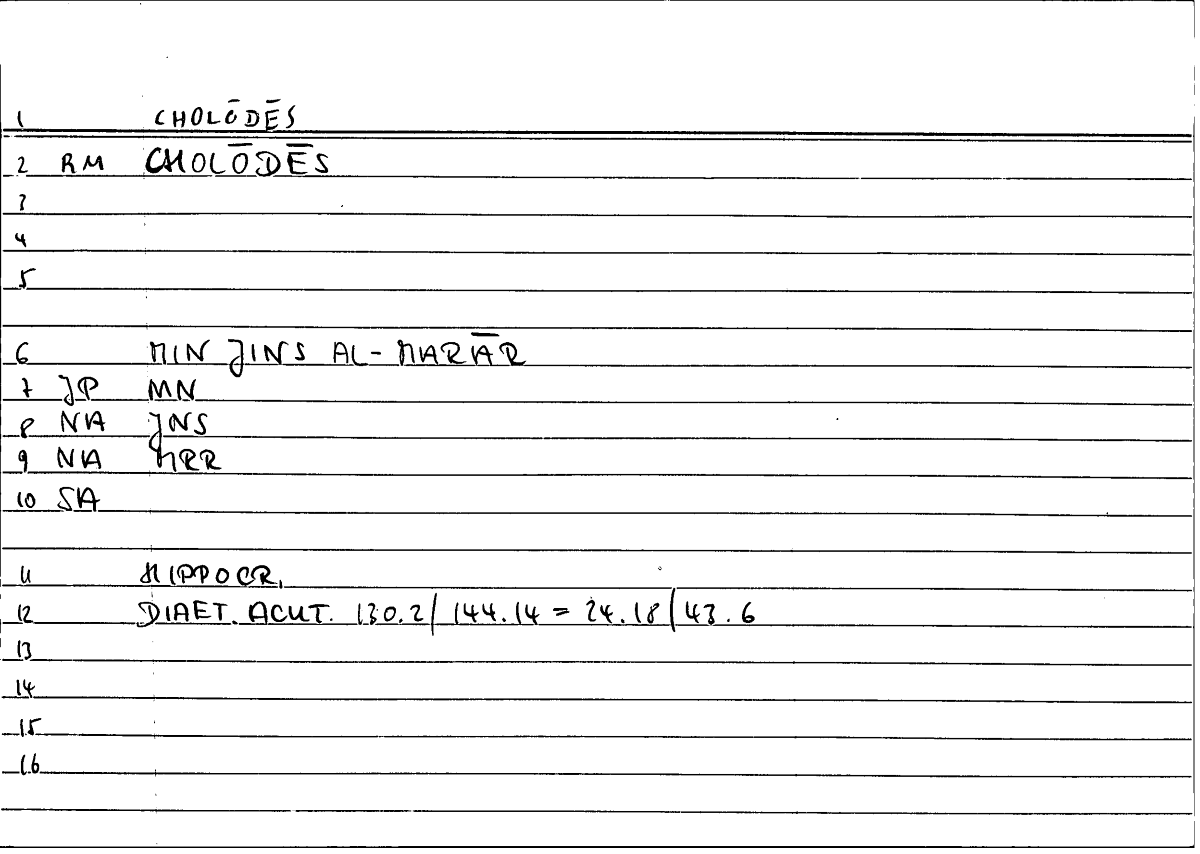 1 CHOLŌDĒS
2 RM CHOLŌDĒS
3
4
5
6 MIN JINS AL-MARĀR
7 JP MN
8 NA JNS
9 NA MRR
10 SA
11 HIPPOCR.
12 DIAET. ACUT. 130.2/144.14 = 24.18/43.6
13
14
15
16